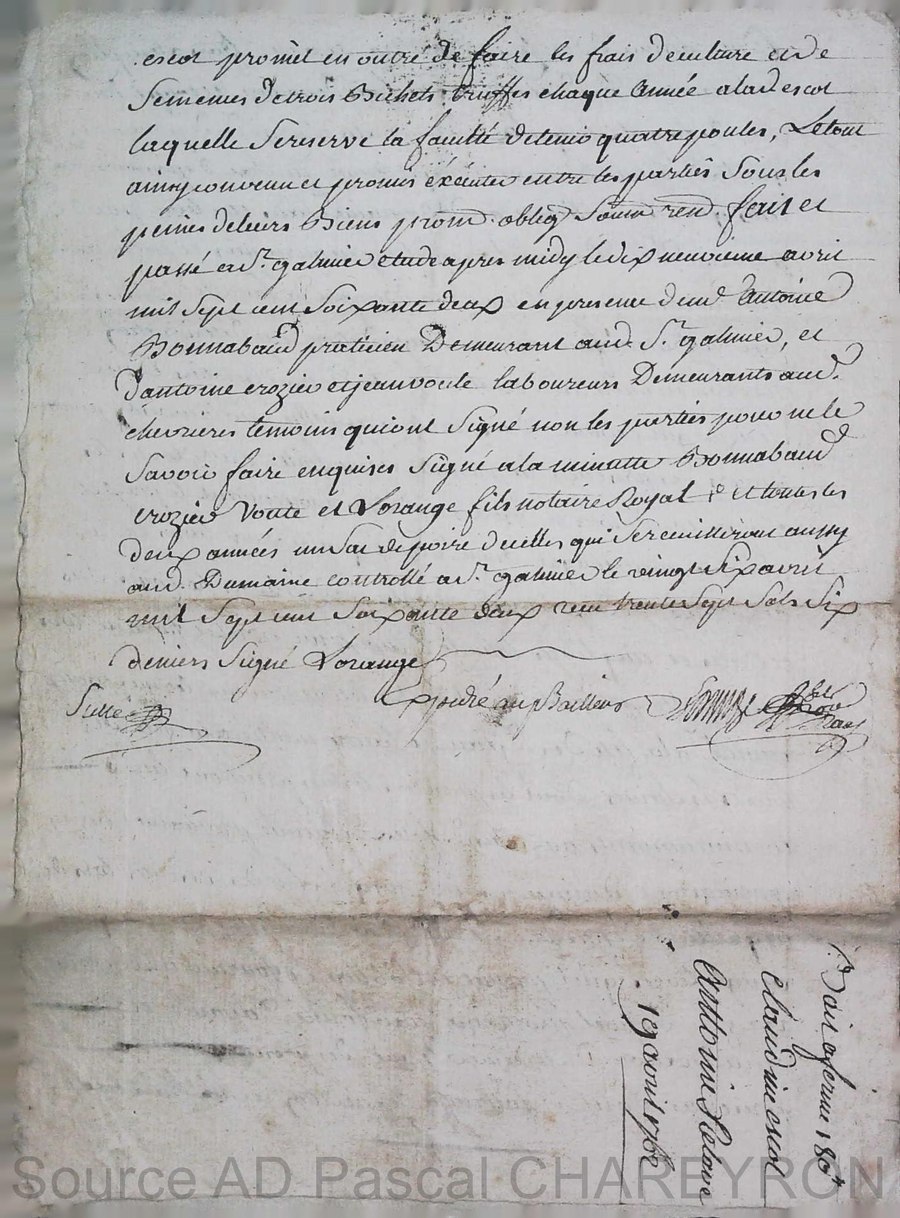 escot promet en outre de faire les frais de culture et de
Semences de trois Bichets truffes chaque Année a lad escot
laquelle Se reserve la faculté de tenir quatre poules, Le tout
ainsy convenu et promis éxécuter entre les parties Sous les
peines de leurs Biens prom. oblig Soum rend. fait et
passé a St. galmier etude apres midy le dix neuvieme avril
mil Sept cent Soixante deux en presence de md Antoine
Bonnabaud praticien Demeurant aud. St. galmier, et
d'antoine crozier et jean voute laboureurs Demeurants aud.
chevrieres temoins qui ont Signé non les parties pour ne le
Savoir faire enquises Signé a la minutte Bonnabaud
crozier Voute et Lorange fils notaire Royal et toutes les
deux années un Sac de poire de celles qui Se reuilliron aussy
aud. Dumaine controllé a St. galmier le vingt Six avril
mil Sept cent Soixante deux recu trente Sept Sols Six
deniers Signé Lorange
Expedié au Bailleur
Bail a ferme
claudine escot
Anttoine
19 avril 1762
Source AD Pascal CHAREYRON